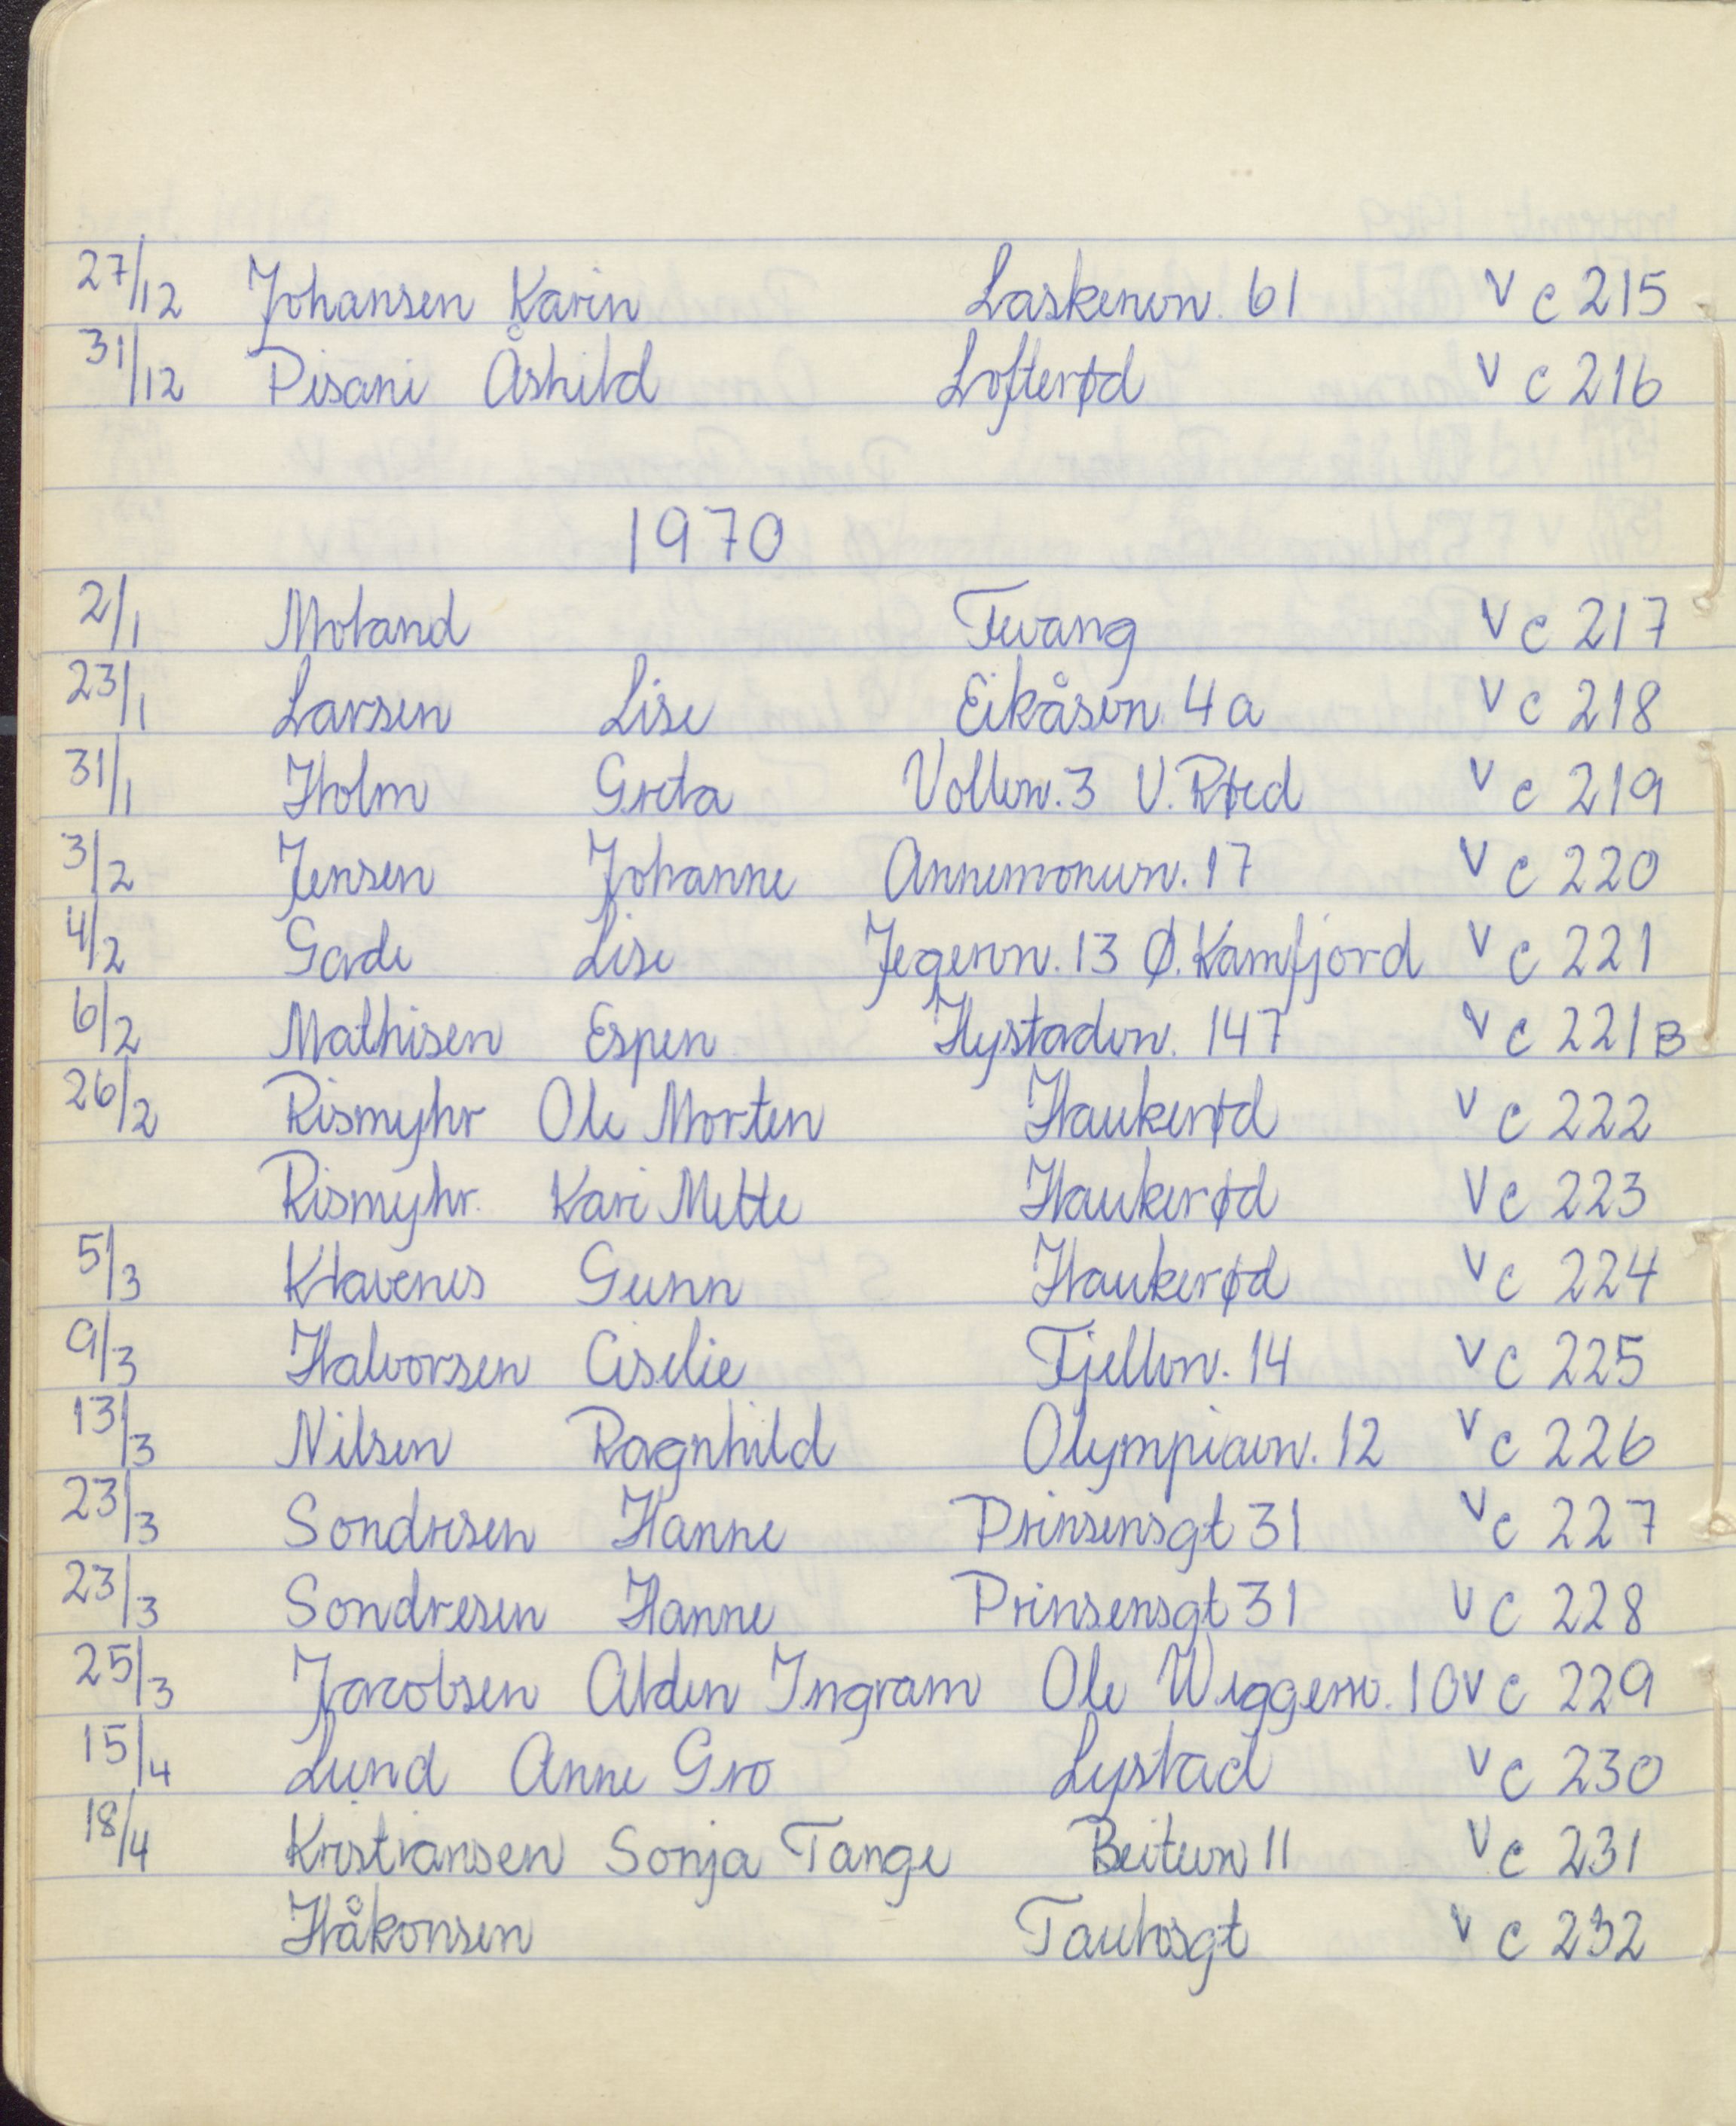 27/12 Johansen Karin Laskenvn. 61 V C 215
31/12 Pisani Åshild Lofterød V C 216
1970
2/1 Moland Furang V C 217
23/1 Larsen Lise Eikåsvn. 4a V C 218
31/1 Holm Greta Vollvn. 3 V. Røed V C 219
3/2 Jensen Johanne Annemonevn. 17 V C 220
4/2 Gade Lise Jegervn. 13 Ø. Kamfjord V C 221
6/2 Mathisen Espen Hystadvn. 147 V C 221B
26/2 Rismyhr Ole Morten Haukerød V C 222
Rismyhr. Kari Mette Haukerød V C 223
5/3 Klavenes Gunn Haukerød V C 224
9/3 Halvorsen Ciselie Fjellvn. 14 V C 225
13/3 Nilsen Ragnhild Olympiavn. 12 V C 226
23/3 Sondresen Hanne Prinsensgt 31 V C 227
23/3 Sondresen Hanne Prinsensgt 31 V C 228
25/3 Jacobsen Alden Ingram Ole Wiggenv. 10 V C 229
15/4 Lund Anne Gro Lystad V C 230
18/4 Kristiansen Sonja Tange Beitevn 11 V C 231
Håkonsen V C 232